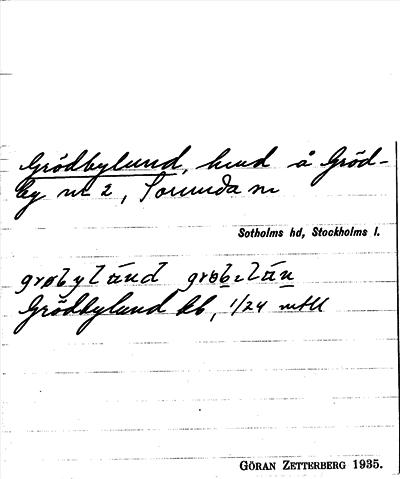 Grödbylund, hmd å Gröd-
by nr 2, Sorunda sn
Sotholms hd, Stockholms l.
Grödbylund kb, 1/24 mtl
GÖRAN ZETTERBERG 1935.